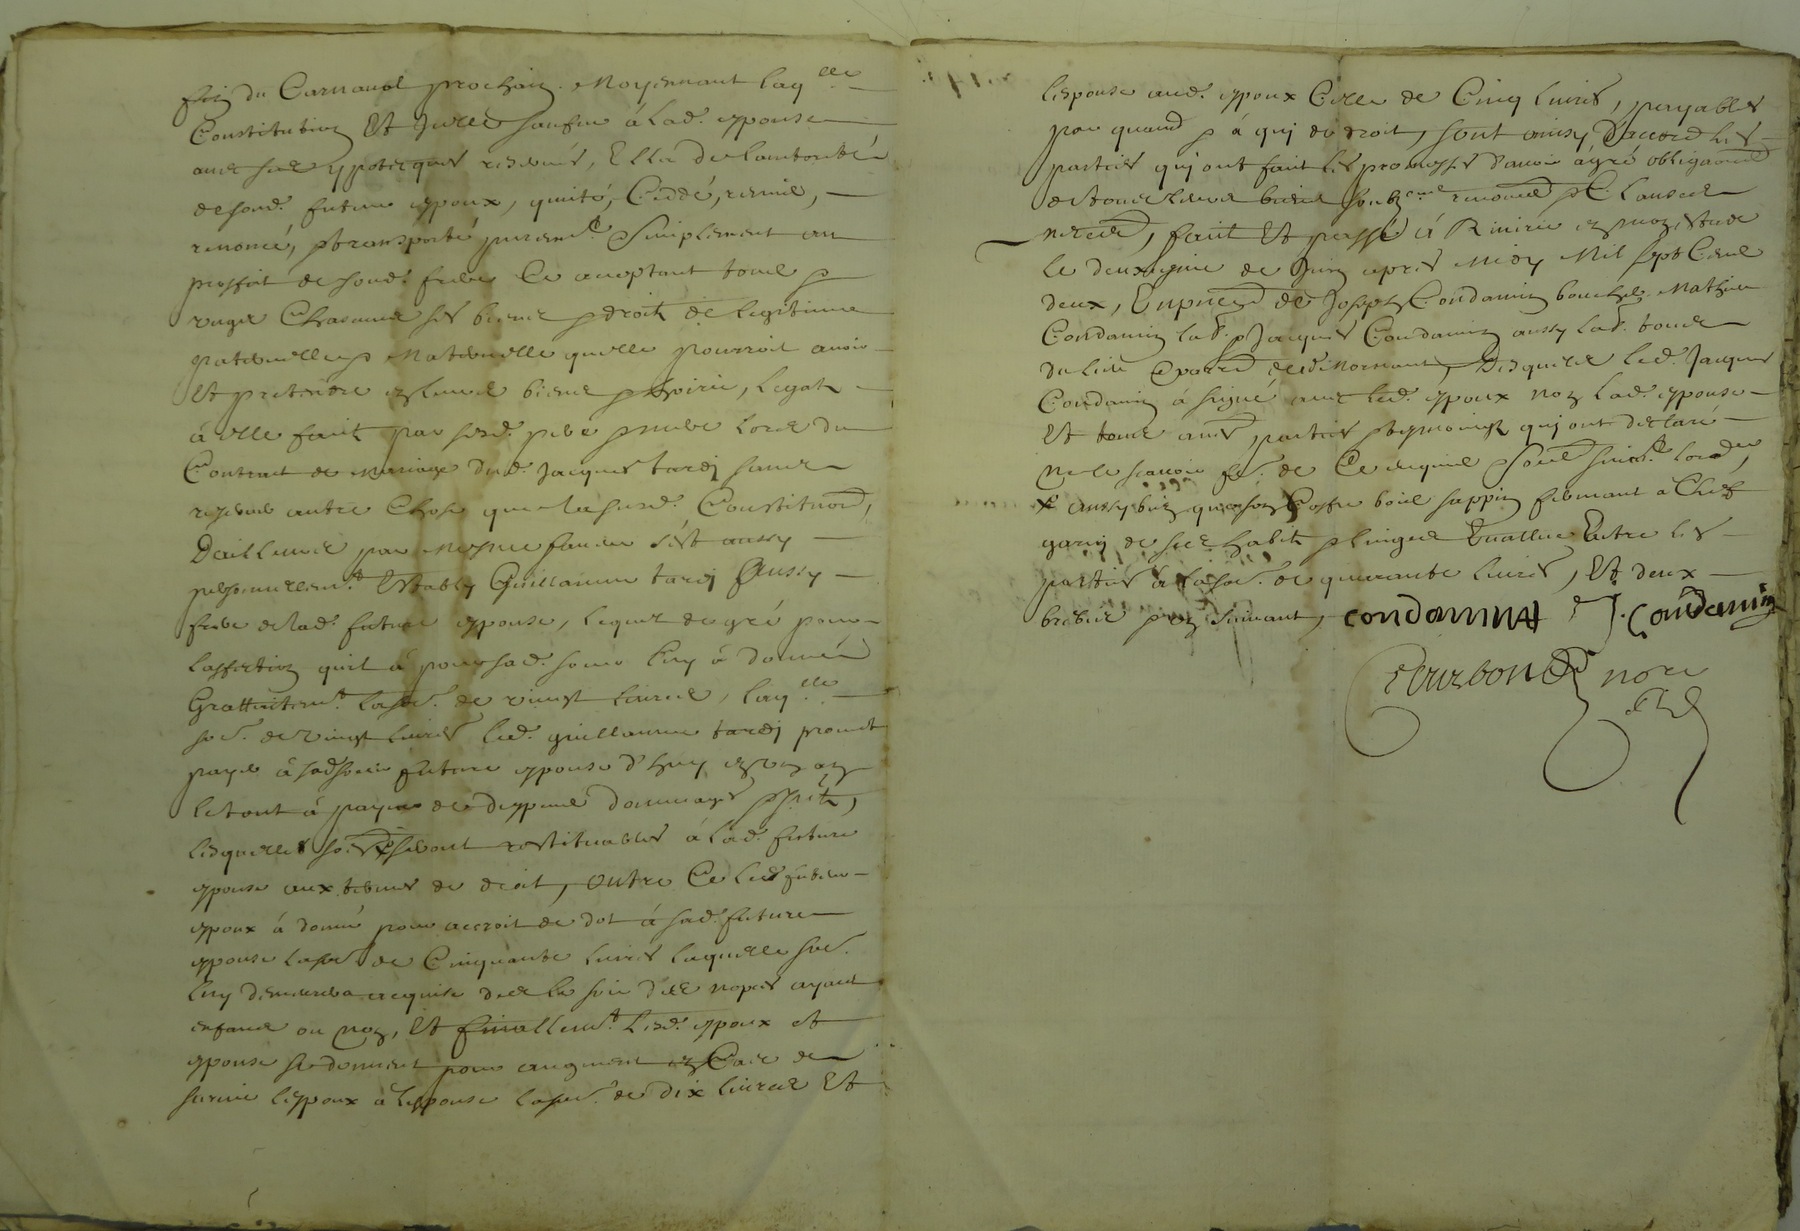 fin du Carnaval prochain. Moyennant laq.lle
Constitution Et Icelle sauf à lad. epouse
avec ses ypotecques reservés, Ella de lautorité
de sond. futur epoux, quité, Ceddé, remis,
renoncé, & transporté purem.t & simplement au
proffit de sond. frere Ce acceptant tous &
ses biens & droits de legitime
paternelle & Maternelle quelle pourroit avoir
Et pretendre es leurs biens & hoirie, legats
à elle faits par sesd. pere & mere lors du
Contrat de Mariage dud. Jacques tardj sans
reserve autre Chose que la susd. Constituon,
Dailleurs par mesme s'est aussy
personnellem.t Estably Guillaume tardj aussy
frere de lad. future epouse, lequel de gré pour
laffection quil à pour sad. soeur luy à donné
Grattuitem.t la so.e de vingt livres, laq.lle
so.e de vingt livres led. guillaume tardj promet
payer à sad. soeur future epouse d'huy en un an
le tout à payne de depens dommages & Jnts,
lesquelles so.es seront restituables à lad. future
epouse aux termes de droit, outre Ce led. futur
epoux à donné pour accroit de dot à sad. future
epouse la so.e de Cinquante livres laquelle so.e
luy demeurera acquise des le soir des nopces ayant
enfans ou non, Et finallem.t lesd. epoux et
epouse se donnent pour augment en Cas de
survie lepoux à lepouse la so.e de dix livres Et
lespouse aud. epoux Celle de Cinq livres, payables
par quand & à quj de droit, sont ainsy d'accord les
parties quj ont fait les promesses d'avoir àgré obligaons
de tous leurs biens renonc. & Clauses
necess., fait Et passé à Rivirie en mon estude
le deuxiesme de Juin apres Midy Mil sept Cens
deux, En presen. de Joseph Condamin Mathieu
Condamin lab. & Jacques Condamin aussy lab. tous
du lieu & parr. de Mornant, Desquels led. Jacques
Condamin à signé avec led. epoux non lad. epouse
Et tous aues parties & tesmoings quj ont declaré
ne le scavoir fe. de Ce requis & suiv.t lord.,
x aussy bien qu'un son Coffre bois sappin fermant à Clef
garny de ses habits & linges Evallué Entre les
parties à la so.e de quarante livres, Et deux
brebis suivant, condaminat J. Condamin
no.re